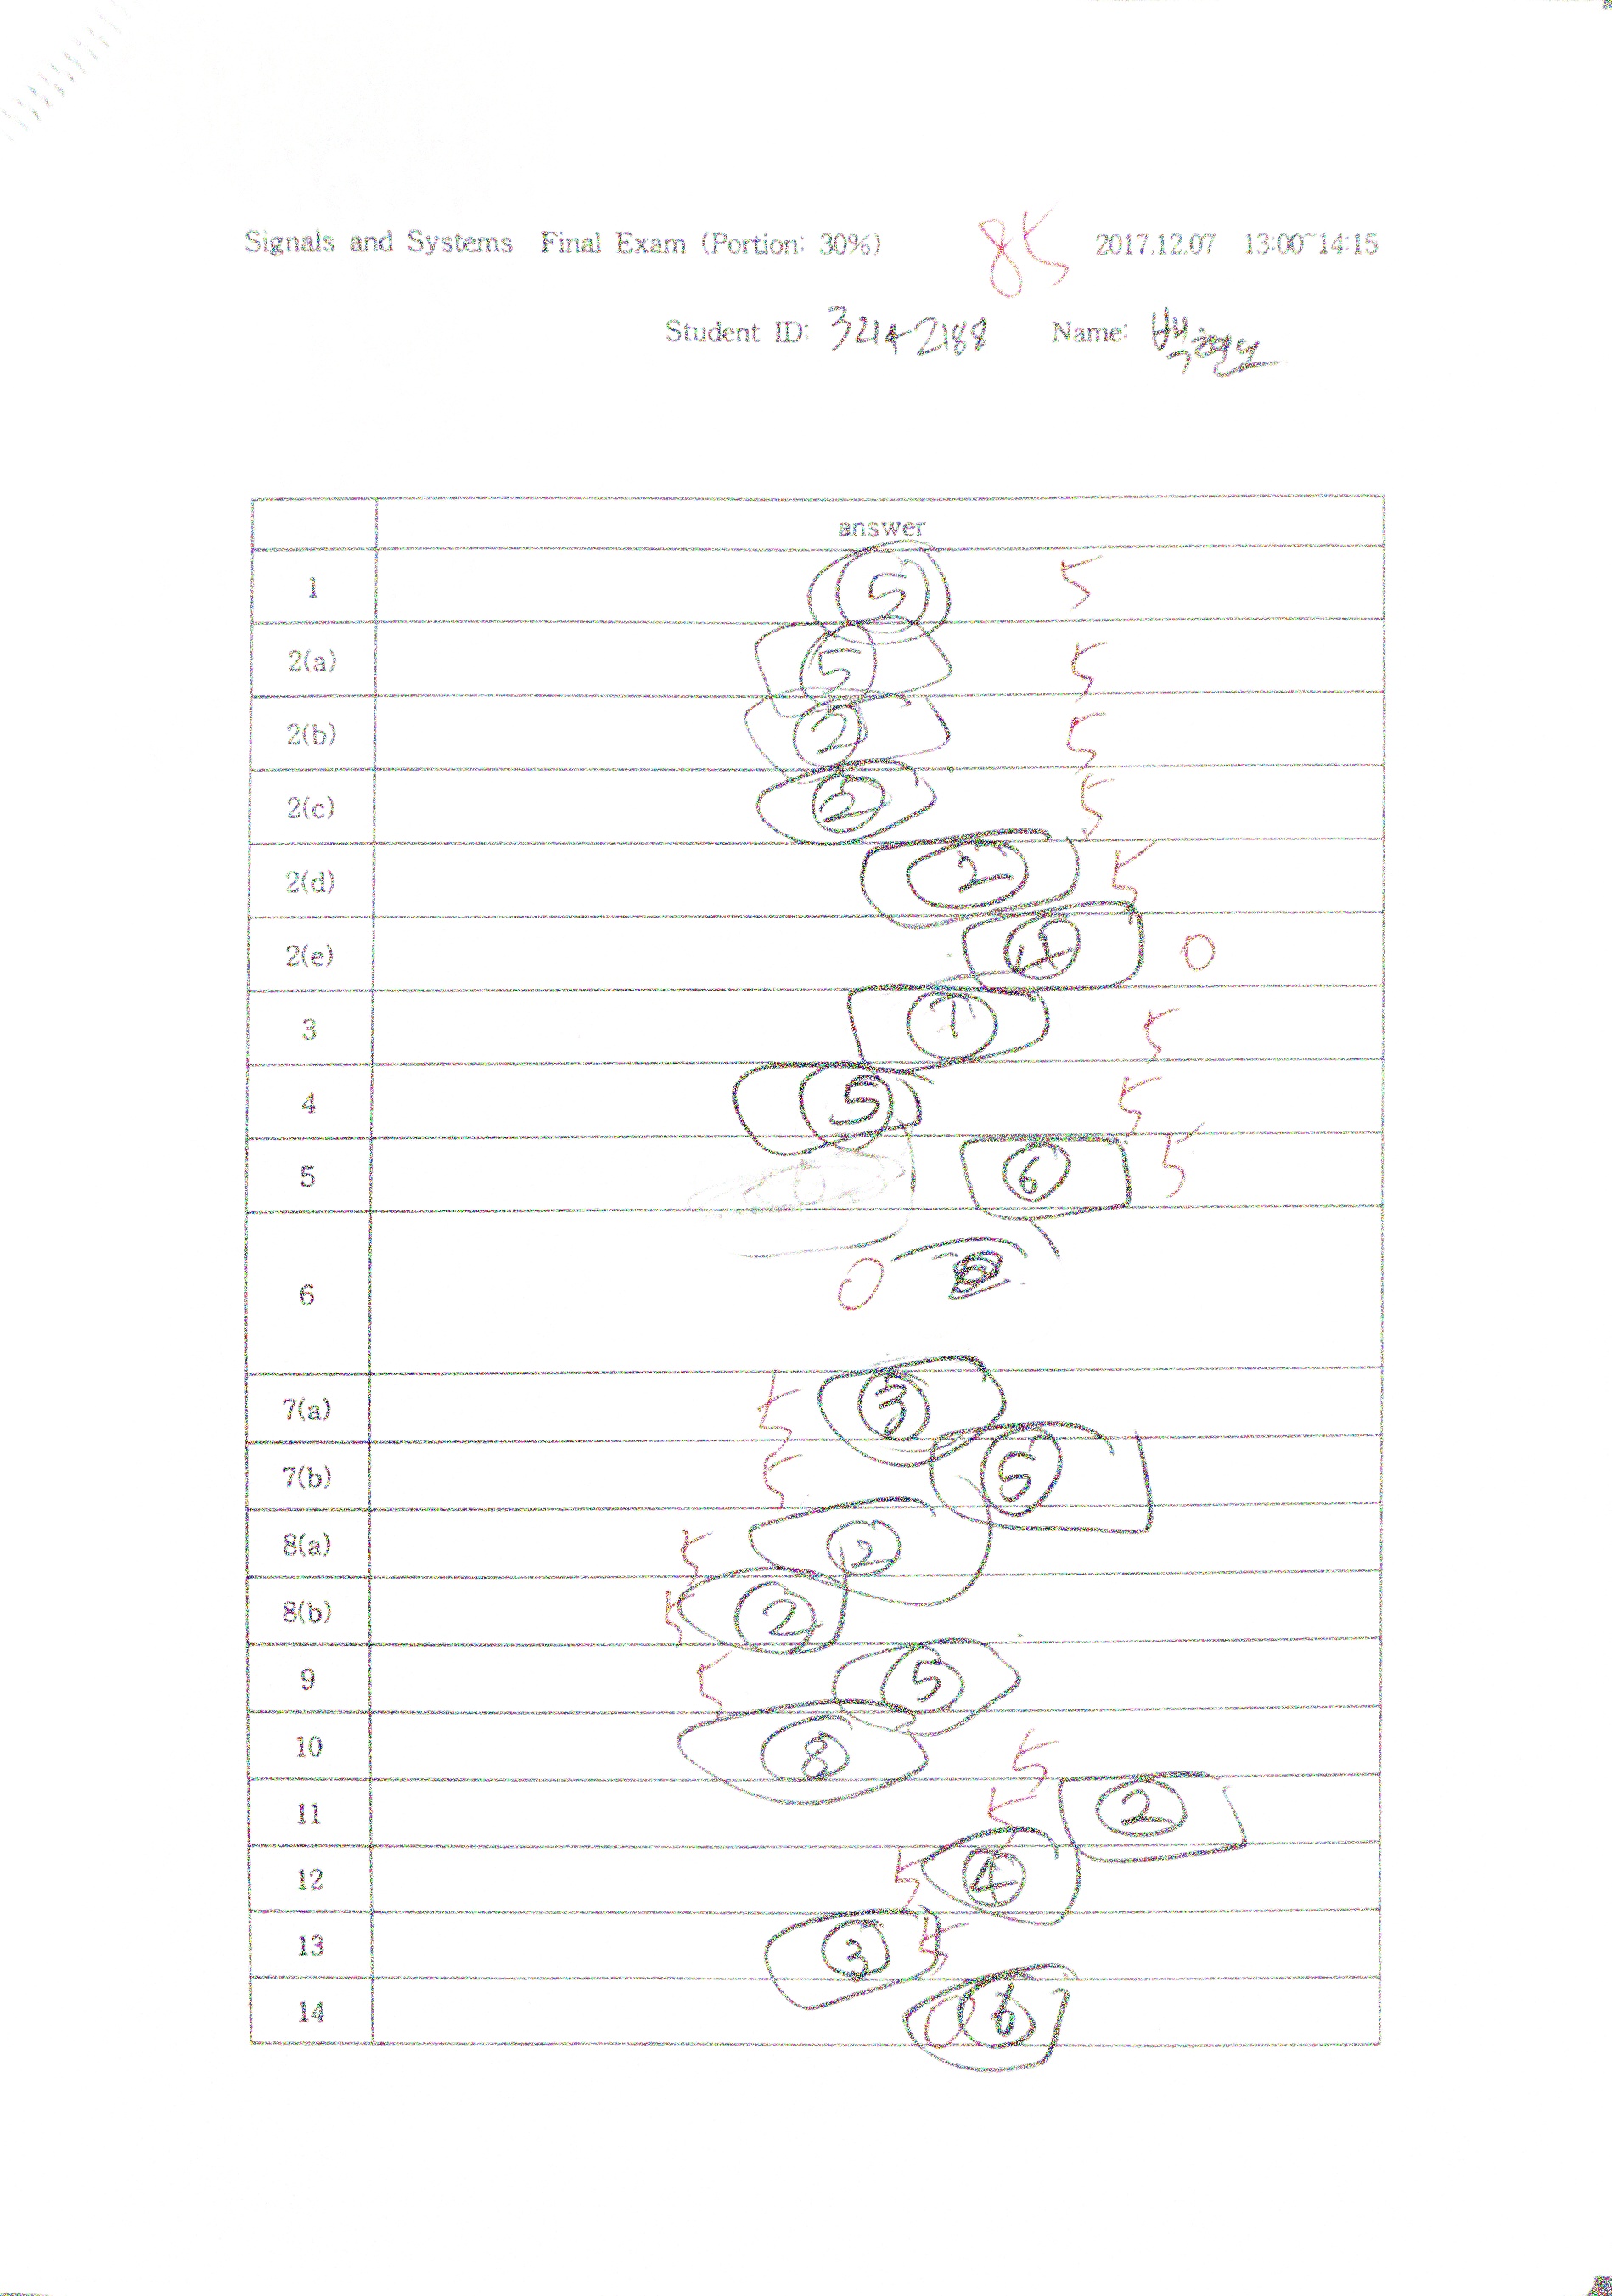 Signals and Systems Final Exam (Portion: 30%) 85 2017.12.07 13:00~14:15
Student ID: 32142188 Name:
answer
1 5 5
2(a) 5 5
2(b) 2 5
2(c) 2 5
2(d) 2 5
2(e) 4 0
3 1 5
4 5 5
5 6 5
6 0
7(a) 5 3
7(b) 5 5
8(a) 5 2
8(b) 5 2
9 5 5
10 8 5
11 5 2
12 5 4
13 3 5
14 0 6